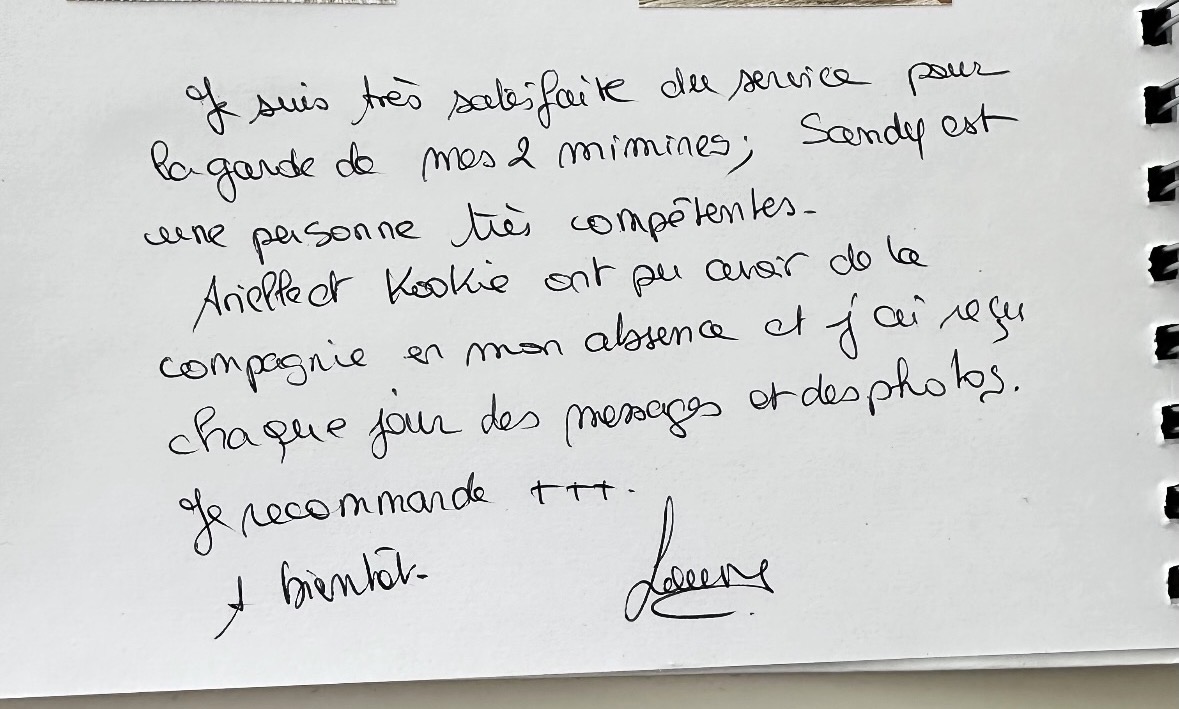 Je suis très satisfaite du service pour
la garde de mes 2 mimines; Sandy est
une personne très compêtentes.
et Kookie ont pu avoir de la
compagnie en mon absence et j'ai reçu
chaque jour des messages et des photos.
Je recommande +++.
A bientôt.